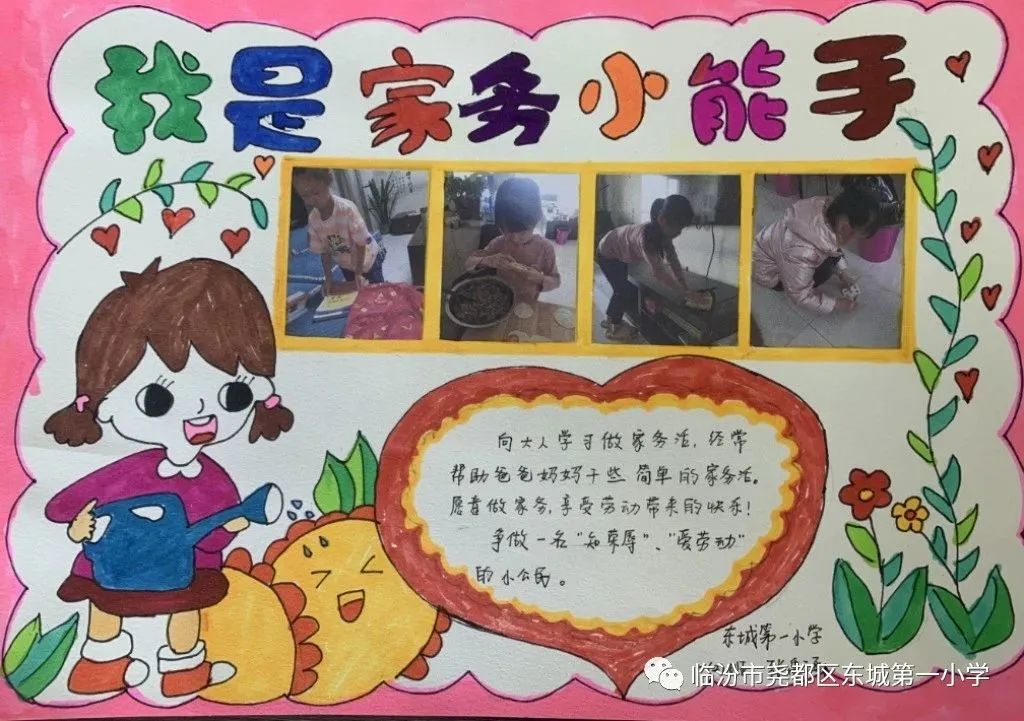 我是家务小能手
向大人学习做家务活，经常
帮助爸爸妈妈干些简单的家务活。
愿意做家务，享受劳动带来的快乐！
争做一名"知荣辱"、"爱劳动"
的小公民。
东城第一小学
临汾市尧都区东城第一小学